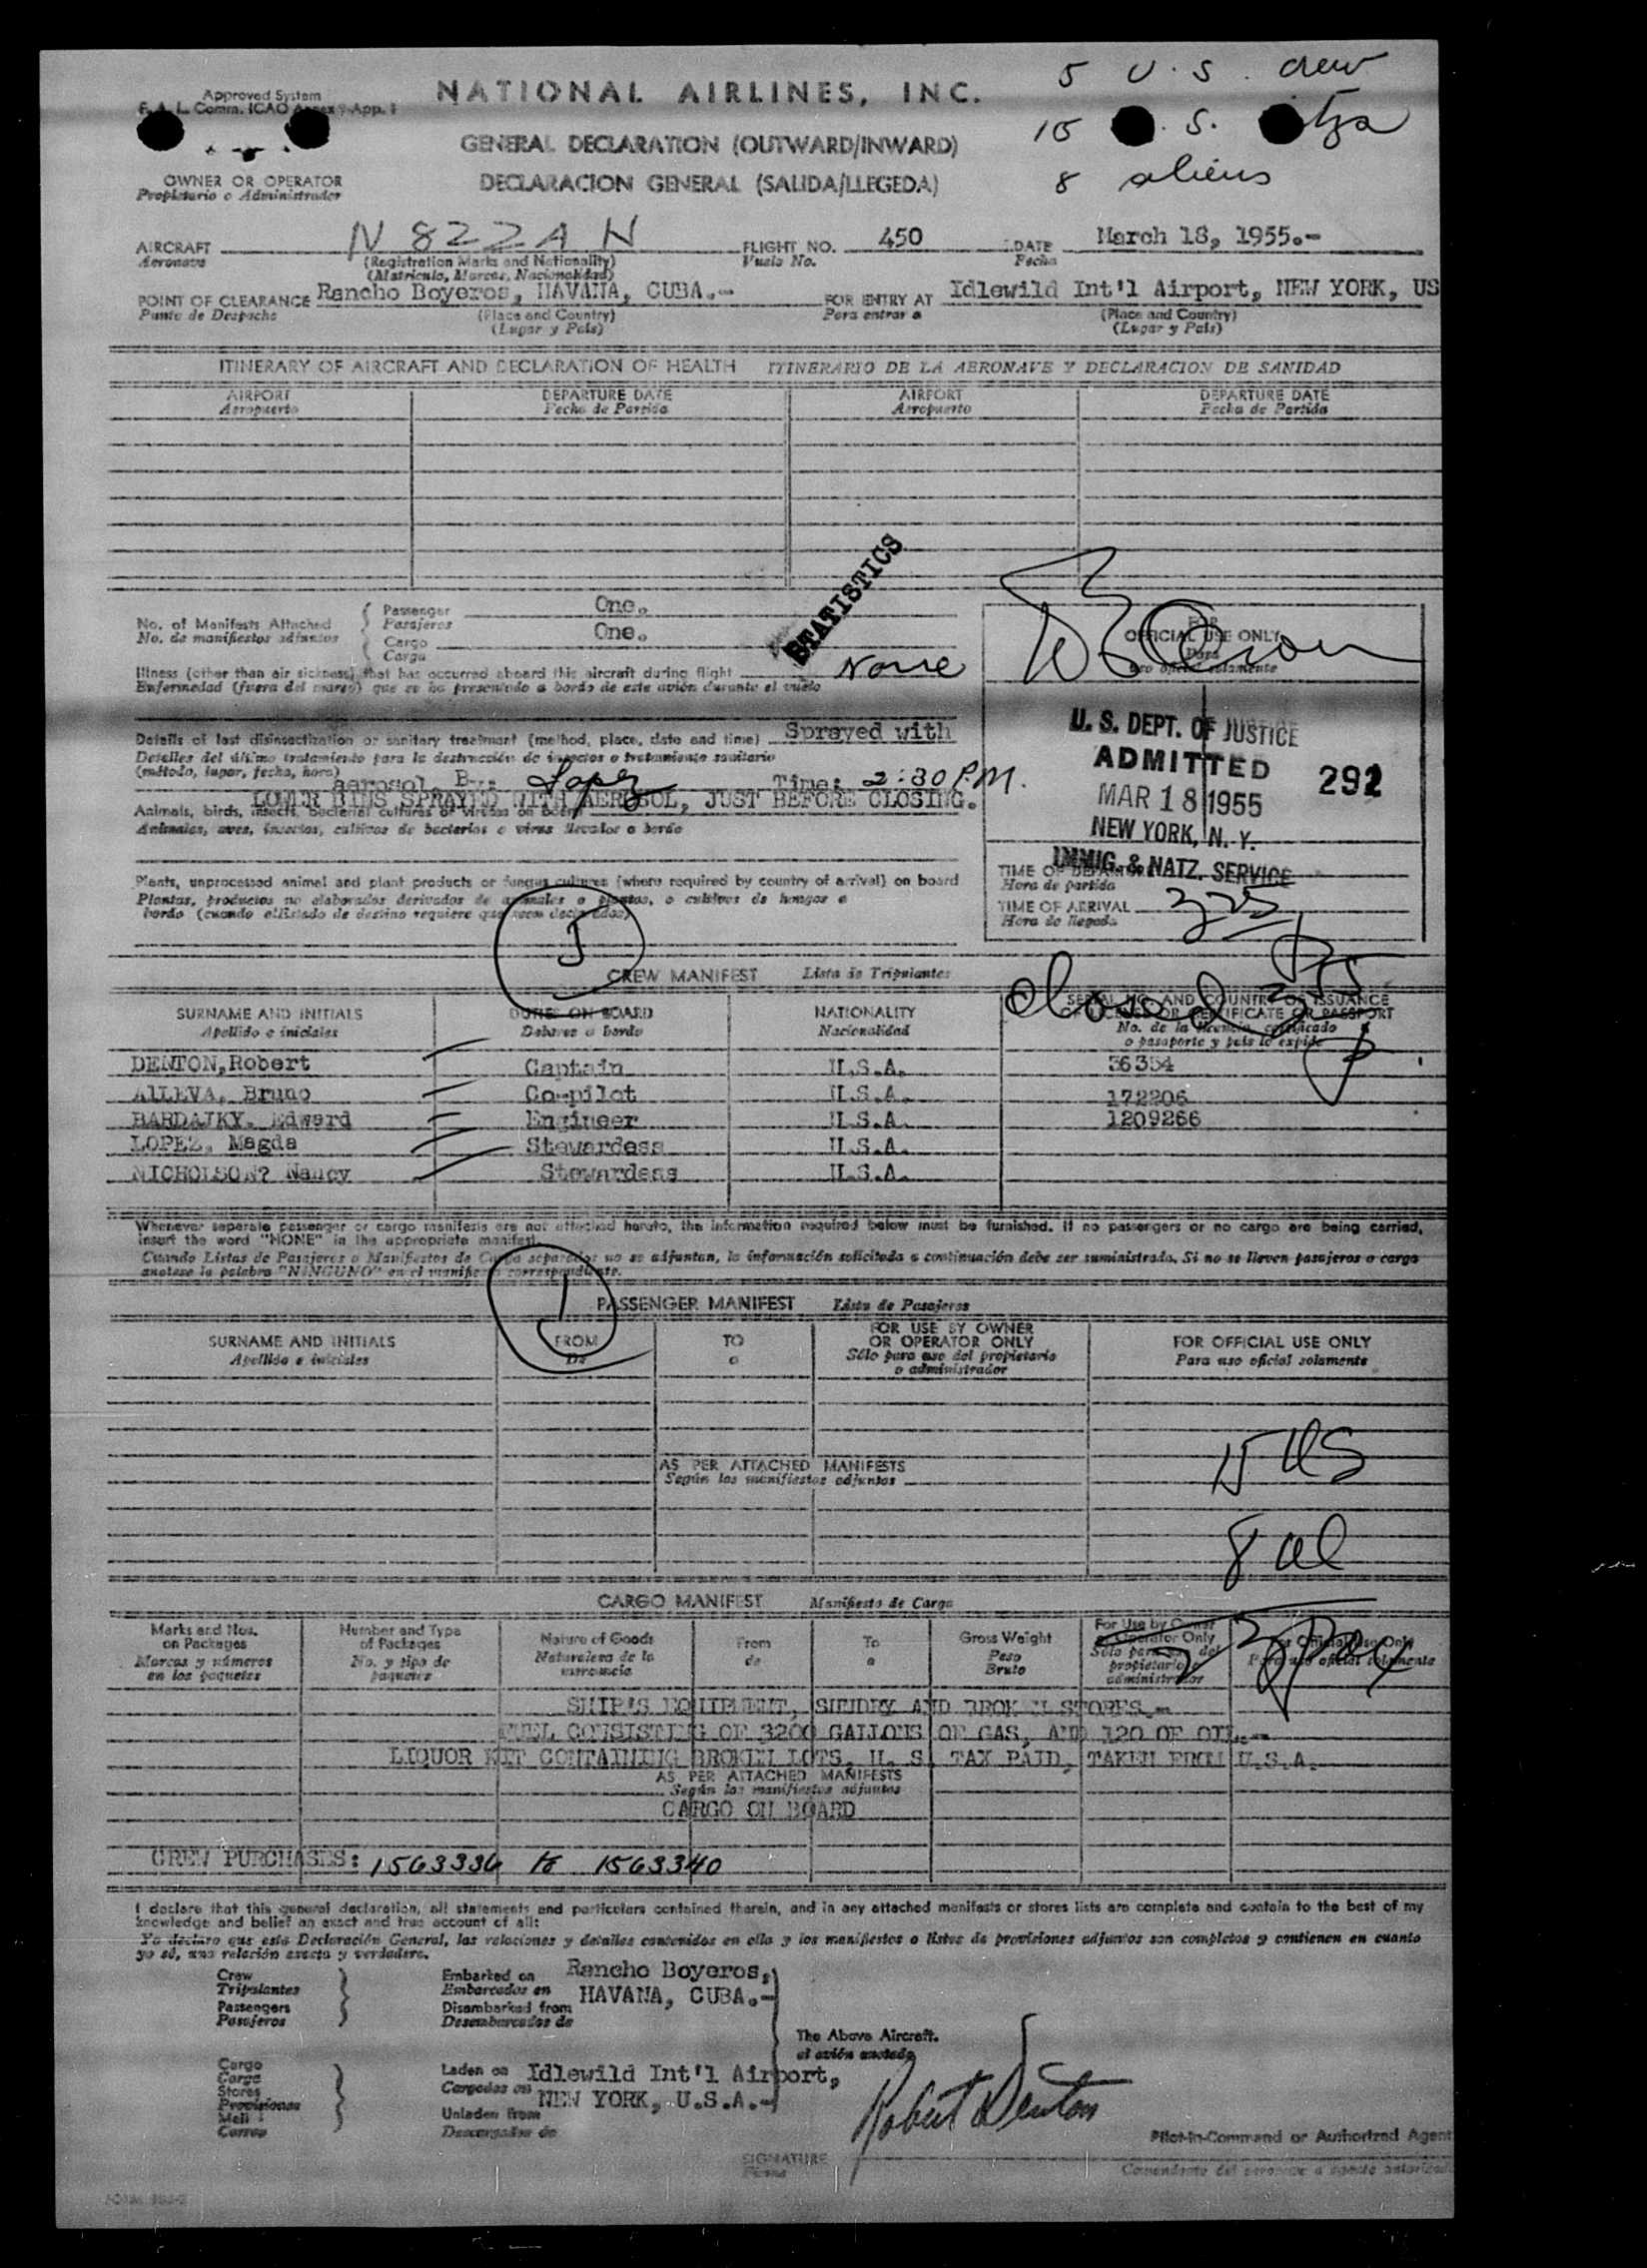 5 U.S. crew
Approved System
NATIONAL AIRLINES, INC.
F. A. L. Comm. ICAO Annex 9 App. 1
15 . S.
GENERAL DECLARATION (OUTWARD/INWARD)
OWNER OR OPERATOR
DECLARACION GENERAL (SALIDA/LLEGEDA)
8 aliens
Propietario o Administrador
AIRCRAFT N 822A N FLIGHT NO. 450 DATE March 18, 1955.-
Aeronave (Registration Marks and Nationality) Vuelo No. Fecha
(Matricula, Marcas, Nacionalidad)
POINT OF CLEARANCE Rancho Boyeros, HAVANA, CUBA.- FOR ENTRY AT Idlewild Int'l Airport, NEW YORK, US
Punto de Despacho (Place and Country) Para entrar a (Place and Country)
(Lugar y Pais) (Lugar y Pais)
ITINERARY OF AIRCRAFT AND DECLARATION OF HEALTH ITINERARIO DE LA AERONAVE Y DECLARACION DE SANIDAD
AIRPORT DEPARTURE DATE AIRPORT DEPARTURE DATE
Aeropuerto Fecha de Partida Aeropuerto Fecha de Partida
STATISTICS
No. of Manifests Attached Passenger One.
No. de manifiestos adjuntos Pasajeros
Cargo One.
Carga
FOR
OFFICIAL USE ONLY
Para
uso oficial solamente
Illness (other than air sickness) that has occurred aboard this aircraft during flight None
Enfermedad (fuera del mareo) que se ha presentado a bordo de este avión durante el vuelo
Details of last disinsectization or sanitary treatment (method, place, date and time) Sprayed with
Detalles del último tratamiento para la destrucción de insectos o tratamiento sanitario
(método, lugar, fecha, hora)
aerosol By: Lopez Time: 2:30 P.M.
LOWER BINS SPRAYED WITH AEROSOL, JUST BEFORE CLOSING.
Animals, birds, insects, bacterial cultures or viruses on board
Animales, aves, insectos, cultivos de bacterias o virus llevados a bordo
U. S. DEPT. OF JUSTICE
ADMITTED 292
MAR 18 1955
NEW YORK, N. Y.
IMMIG. & NATZ. SERVICE
TIME OF DEPARTURE
Hora de partida
TIME OF ARRIVAL 325
Hora de llegada
Plants, unprocessed animal and plant products or fungus cultures (where required by country of arrival) on board
Plantas, productos no elaborados derivados de animales o plantas, o cultivos de hongos a
bordo (cuando el Estado de destino requiere que sean declarados)
5
CREW MANIFEST Lista de Tripulantes
Closed 355
SURNAME AND INITIALS DUTIES ON BOARD NATIONALITY SERIAL NO. AND COUNTRY OF ISSUANCE
OF LICENSE OR CERTIFICATE OR PASSPORT
Apellido e iniciales Deberes a bordo Nacionalidad No. de la licencia, certificado
o pasaporte y pais lo expide
DENTON,Robert Captain U.S.A. 36354
ALLEVA, Bruno Co-pilot U.S.A. 172206
BARDAJKY, Edward Engineer U.S.A. 1209266
LOPEZ, Magda Stewardess U.S.A.
NICHOLSON? Nancy Stewardess U.S.A.
Whenever seperate passenger or cargo manifests are not attached hereto, the information required below must be furnished. If no passengers or no cargo are being carried,
insert the word "NONE" in the appropriate manifest.
Cuando Listas de Pasajeros o Manifiestos de Carga separados no se adjuntan, la información solicitada a continuación debe ser suministrada. Si no se lleven pasajeros o carga
anotese la palabra "NINGUNO" en el manifiesto correspondiente.
1
PASSENGER MANIFEST Lista de Pasajeros
SURNAME AND INITIALS FROM TO FOR USE BY OWNER OR OPERATOR ONLY FOR OFFICIAL USE ONLY
Apellido e iniciales De a Sólo para uso del propietario o administrador Para uso oficial solamente
15 US
AS PER ATTACHED MANIFESTS
Según los manifiestos adjuntos
8 al
CARGO MANIFEST Manifiesto de Carga
Marks and Nos. on Packages Number and Type of Packages Nature of Goods From To Gross Weight For Use by Owner or Operator Only For Official Use Only
Marcas y números en los paquetes No. y tipo de paquetes Naturaleza de la mercancia de a Peso Bruto Sólo para uso del propietario o administrador Para uso oficial solamente
SHIP'S EQUIPMENT, SUNDRY AND BROKEN STORES.-
FUEL CONSISTING OF 3200 GALLONS OF GAS, AND 120 OF OIL.-
LIQUOR KIT CONTAINING BROKEN LOTS, U. S. TAX PAID, TAKEN FROM U.S.A.
AS PER ATTACHED MANIFESTS
Según los manifiestos adjuntos
CARGO ON BOARD
CREW PURCHASES: 1563336 to 1563340
I declare that this general declaration, all statements and particulars contained therein, and in any attached manifests or stores lists are complete and contain to the best of my
knowledge and belief an exact and true account of all:
Yo declaro que esta Declaración General, las relaciones y detalles contenidos en ella y los manifiestos o listas de provisiones adjuntos son completos y contienen en cuanto
yo sé, una relación exacta y verdadera.
Crew Embarked on Rancho Boyeros,
Tripulantes Embarcados en HAVANA, CUBA.-
Passengers Disembarked from
Pasajeros Desembarcados de
The Above Aircraft.
el avión anotado
Cargo Laden on Idlewild Int'l Airport,
Carga Cargados en NEW YORK, U.S.A.-
Stores
Provisiones Unladen from
Mail Descargados de
Correo
Robert Denton
Pilot-in-Command or Authorized Agent
SIGNATURE
Firma
Comandante del aeronave o agente autorizado